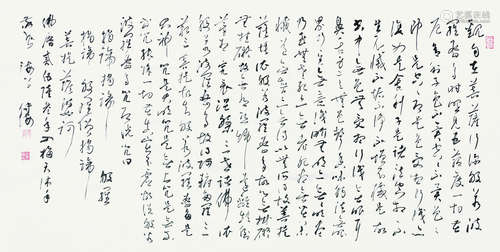 觀自在菩薩行深般若波
羅蜜多時照見五蘊皆空度一切苦
厄舍利子色不異空空不異色色
即是空空即是色受想行識亦
復如是舍利子是諸法空相不
生不滅不垢不淨不增不減是故
空中無色無受想行識無眼耳
鼻舌身意無色聲香味觸法無眼
界乃至無意識界無無明亦無無明盡
乃至無老死亦無老死盡無苦集
滅道無智亦無得以無所得故菩提
薩埵依般若波羅蜜多故心無罣礙
無罣礙故無有恐怖遠離顛倒
夢想究竟涅槃三世諸佛依
般若波羅蜜多故得阿耨多羅三
藐三菩提故知般若波羅蜜多是
大神咒是大明咒是無上咒是無等
等咒能除一切苦真實不虛故說般若
波羅蜜多咒即說咒曰
揭諦揭諦 般羅
揭諦 般羅僧揭諦
菩提薩婆訶